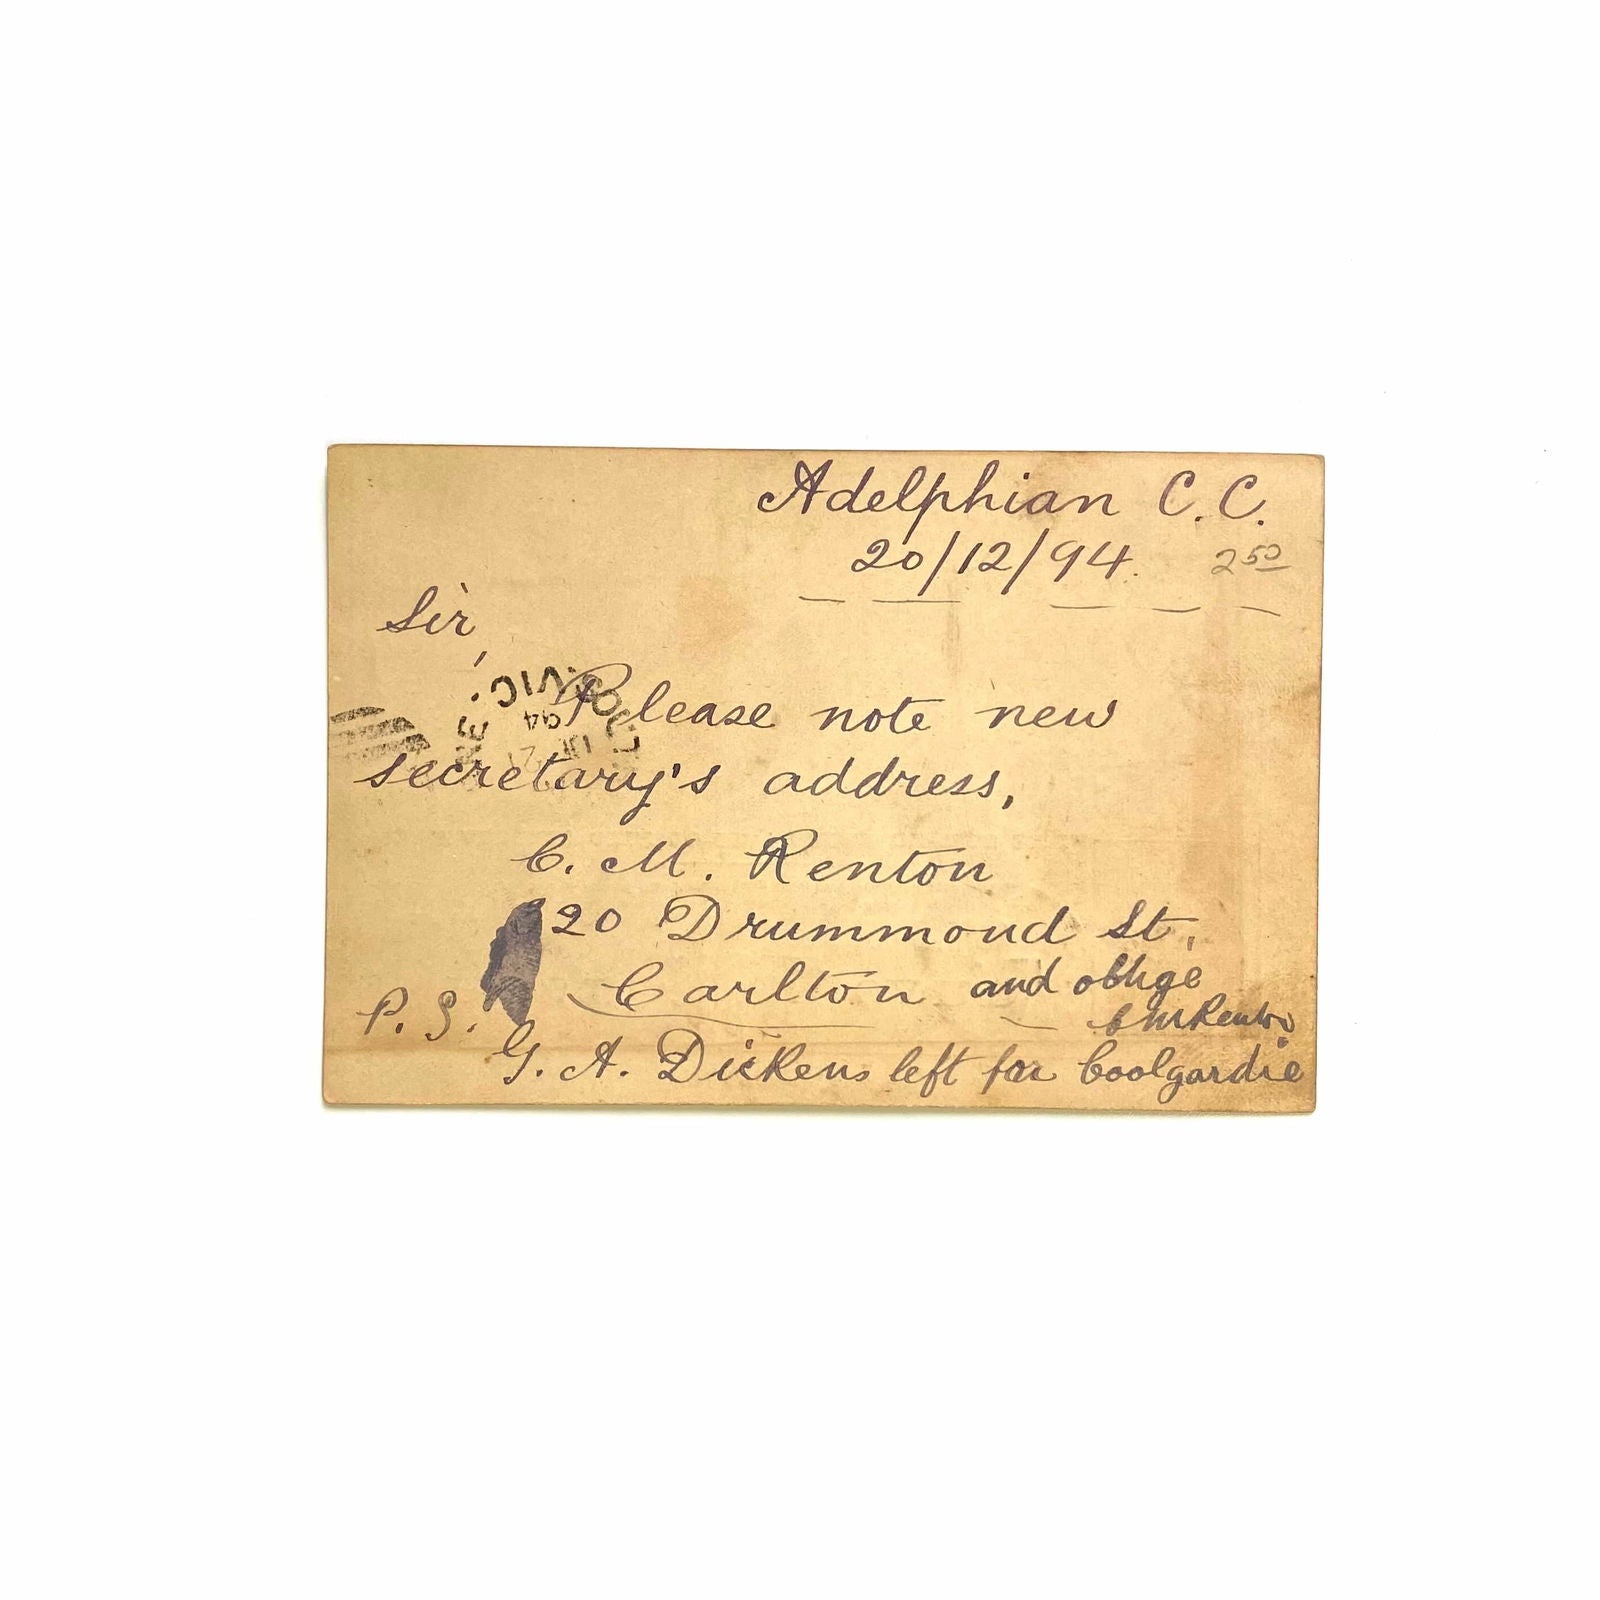 Adelphian C. C.
20/12/94.
2 50
Sir,
Please note new
secretary's address,
C. M. Renton
20 Drummond St,
Carlton and oblige
C M Renton
P. S.
G. A. Dickens left for Coolgardie
VIC.
94